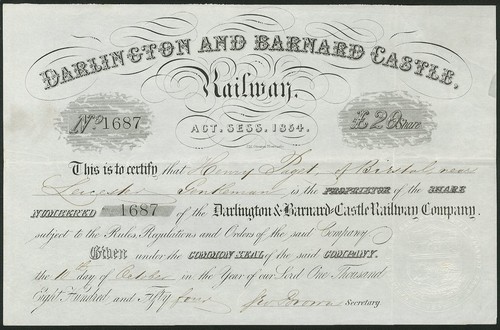 DARLINGTON AND BARNARD CASTLE.
Railway.
No. 1687
£20 Share
ACT. SESS. 1854.
This is to certify that Henry Paget, of Birstal, near
Leicester Gentleman is the PROPRIETOR of the SHARE
NUMBERED 1687 of the Darlington & Barnard-Castle Railway Company,
subject to the Rules, Regulations and Orders of the said Company.
Given under the COMMON SEAL of the said COMPANY,
the day of October in the Year of our Lord One Thousand
Eight Hundred and Fifty four Geo Brown Secretary